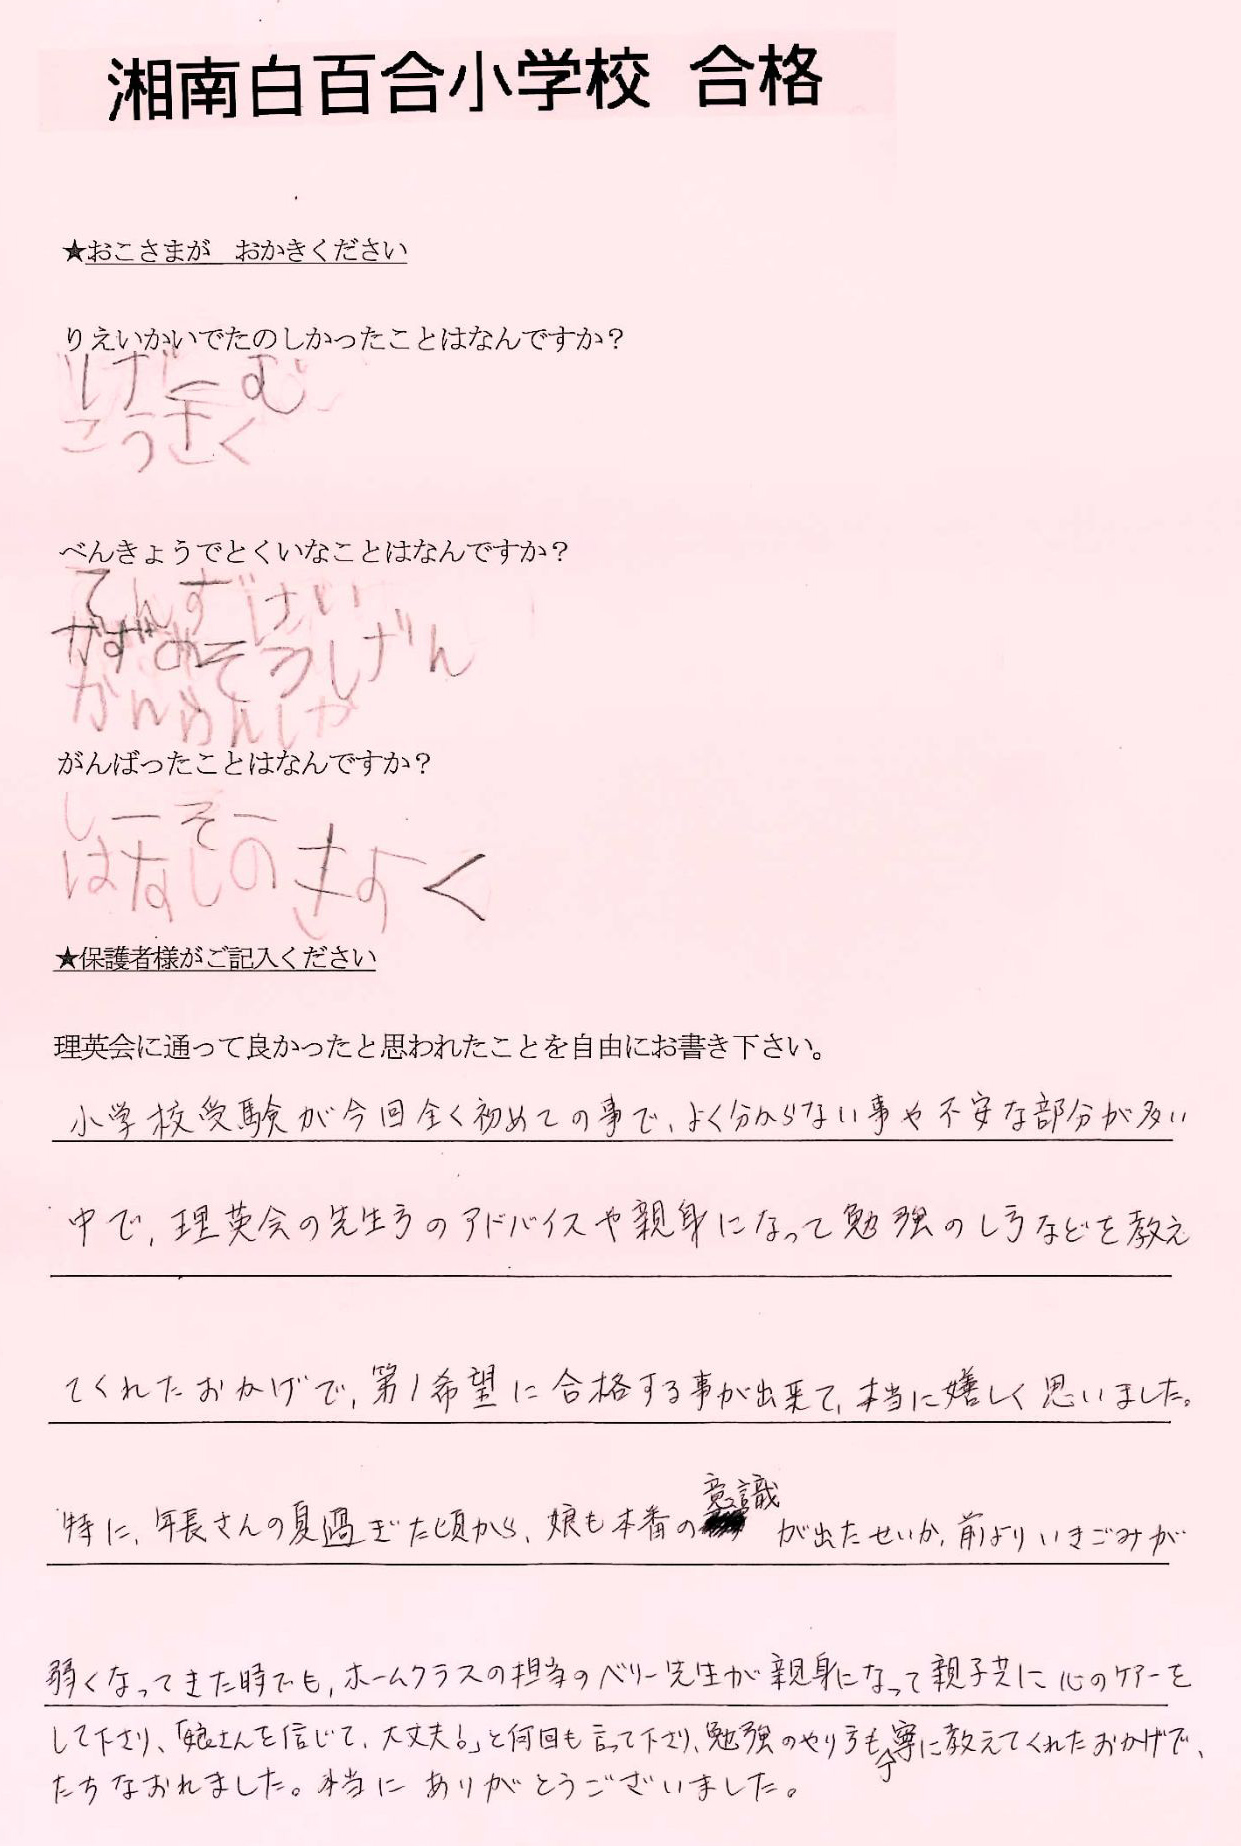 湘南白百合小学校 合格
★おこさまが おかきください
りえいかいでたのしかったことはなんですか？
じげーむ
こうさく
べんきょうでとくいなことはなんですか？
てんずけい
かずあそう しげん
かんらんしゃ
がんばったことはなんですか？
しーそー
はなしのきおく
★保護者様がご記入ください
理英会に通って良かったと思われたことを自由にお書き下さい。
小学校受験が今回全く初めての事で、よく分からない事や不安な部分が多い
中で、理英会の先生方のアドバイスや親身になって勉強のし方などを教え
てくれたおかげで、第1希望に合格する事が出来て、本当に嬉しく思いました。
特に、年長さんの夏過ぎた頃から、娘も本番の意識が出たせいか、前よりいきごみが
弱くなってきた時でも、ホームクラスの担当のベリー先生が親身になって親子共に心のケアーを
して下さり、「娘さんを信じて、大丈夫!」と何回も言って下さり、勉強のやり方も丁寧に教えてくれたおかげで、
たちなおれました。本当にありがとうございました。